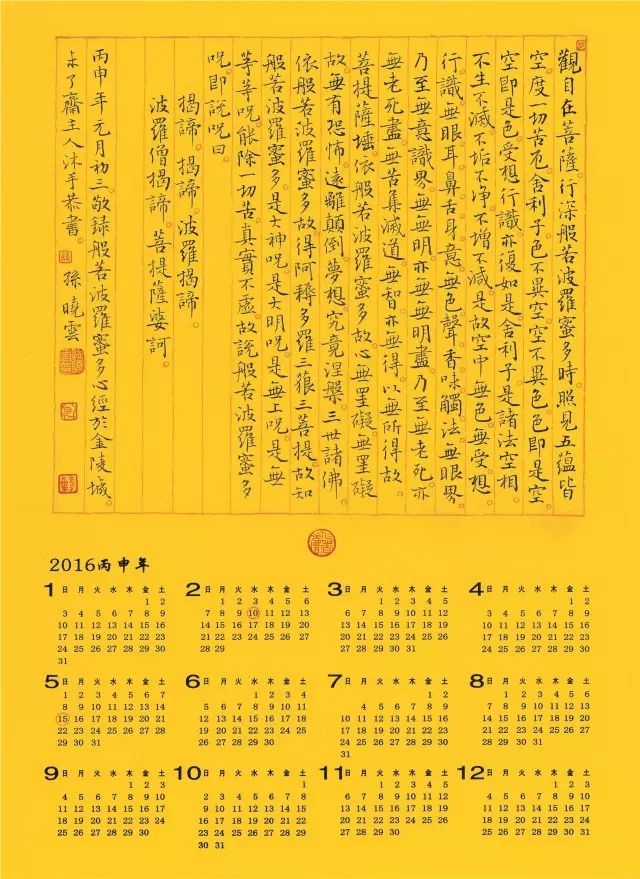 觀自在菩薩行深般若波羅蜜多時照見五蘊皆
空度一切苦厄舍利子色不異空空不異色色即是空
空即是色受想行識亦復如是舍利子是諸法空相
不生不滅不垢不净不增不減是故空中無色無受想
行識無眼耳鼻舌身意無色聲香味觸法無眼界
乃至無意識界無無明亦無無明盡乃至無老死亦
無老死盡無苦集滅道無智亦無得以無所得故
菩提薩埵依般若波羅蜜多故心無罣礙無罣礙
故無有恐怖遠離顛倒夢想究竟涅槃三世諸佛
依般若波羅蜜多故得阿耨多羅三藐三菩提故知
般若波羅蜜多是大神呪是大明呪是無上呪是無
等等呪能除一切苦真實不虛故說般若波羅蜜多
呪即說呪曰
揭諦 揭諦 波羅揭諦
波羅僧揭諦 菩提薩婆訶
丙申年元月初三敬録般若波羅蜜多心經於金陵城
未了齋主人沐手恭書 孫曉雲
2016丙申年
1 日 月 火 水 木 金 土
1 2
3 4 5 6 7 8 9
10 11 12 13 14 15 16
17 18 19 20 21 22 23
24 25 26 27 28 29 30
31
2 日 月 火 水 木 金 土
1 2 3 4 5 6
7 8 9 10 11 12 13
14 15 16 17 18 19 20
21 22 23 24 25 26 27
28 29
3 日 月 火 水 木 金 土
1 2 3 4 5
6 7 8 9 10 11 12
13 14 15 16 17 18 19
20 21 22 23 24 25 26
27 28 29 30 31
4 日 月 火 水 木 金 土
1 2
3 4 5 6 7 8 9
10 11 12 13 14 15 16
17 18 19 20 21 22 23
24 25 26 27 28 29 30
5 日 月 火 水 木 金 土
1 2 3 4 5 6 7
8 9 10 11 12 13 14
15 16 17 18 19 20 21
22 23 24 25 26 27 28
29 30 31
6 日 月 火 水 木 金 土
1 2 3 4
5 6 7 8 9 10 11
12 13 14 15 16 17 18
19 20 21 22 23 24 25
26 27 28 29 30
7 日 月 火 水 木 金 土
1 2
4 5 6 7 8 9
10 11 12 13 14 15 16
17 18 19 20 21 22 23
24 25 26 27 28 29 30
31
8 日 月 火 水 木 金 土
1 2 3 4 5 6
7 8 9 10 11 12 13
14 15 16 17 18 19 20
21 22 23 24 25 26 27
28 29 30 31
9 日 月 火 水 木 金 土
1 2 3
4 5 6 7 8 9 10
11 12 13 14 15 16 17
18 19 20 21 22 23 24
25 26 27 28 29 30
10 日 月 火 水 木 金 土
1
2 3 4 5 6 7 8
9 10 11 12 13 14 15
16 17 18 19 20 21 22
23 24 25 26 27 28 29
30 31
11 日 月 火 水 木 金 土
1 2 3 4 5
6 7 8 9 10 11 12
13 14 15 16 17 18 19
20 21 22 23 24 25 26
27 28 29 30
12 日 月 火 水 木 金 土
1 2 3
4 5 6 7 8 9 10
11 12 13 14 15 16 17
18 19 20 21 22 23 24
25 26 27 28 29 30 31